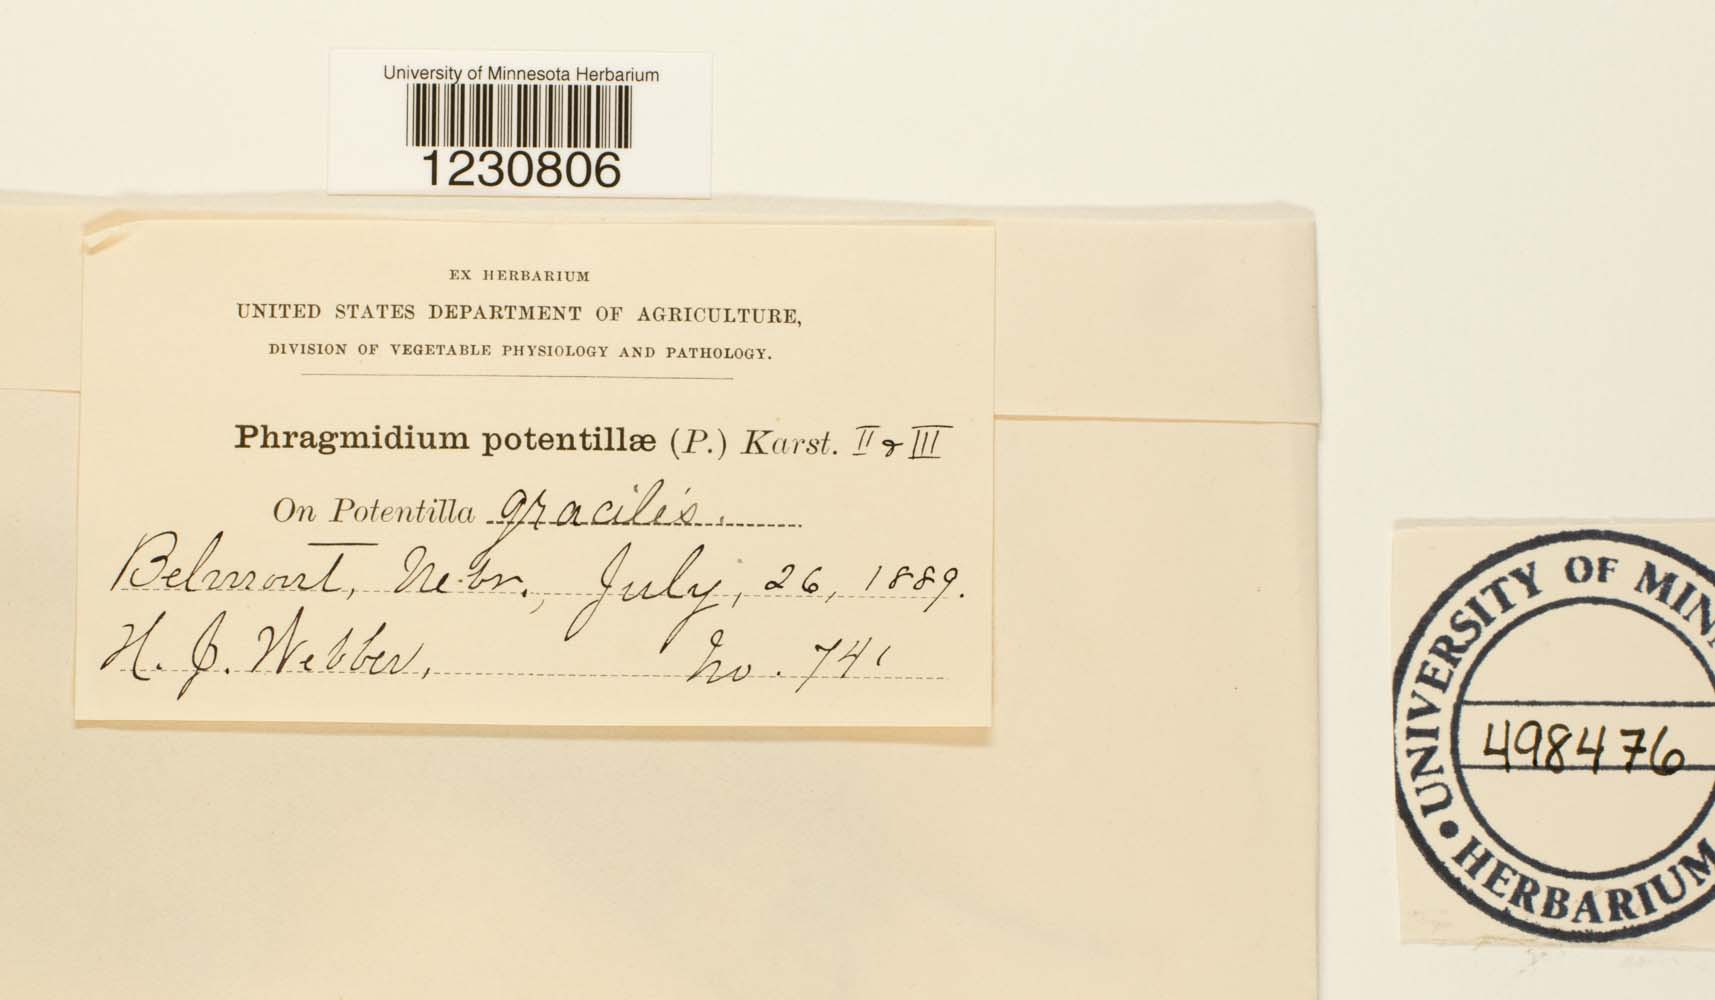 University of Minnesota Herbarium
1230806
EX HERBARIUM
UNITED STATES DEPARTMENT OF AGRICULTURE,
DIVISION OF VEGETABLE PHYSIOLOGY AND PATHOLOGY.
Phragmidium potentillæ (P.) Karst. II & III
On Potentilla gracilis.
Belmont, Nebr., July, 26, 1889.
H. J. Webber, No. 741
UNIVERSITY OF MINN
498476
HERBARIUM